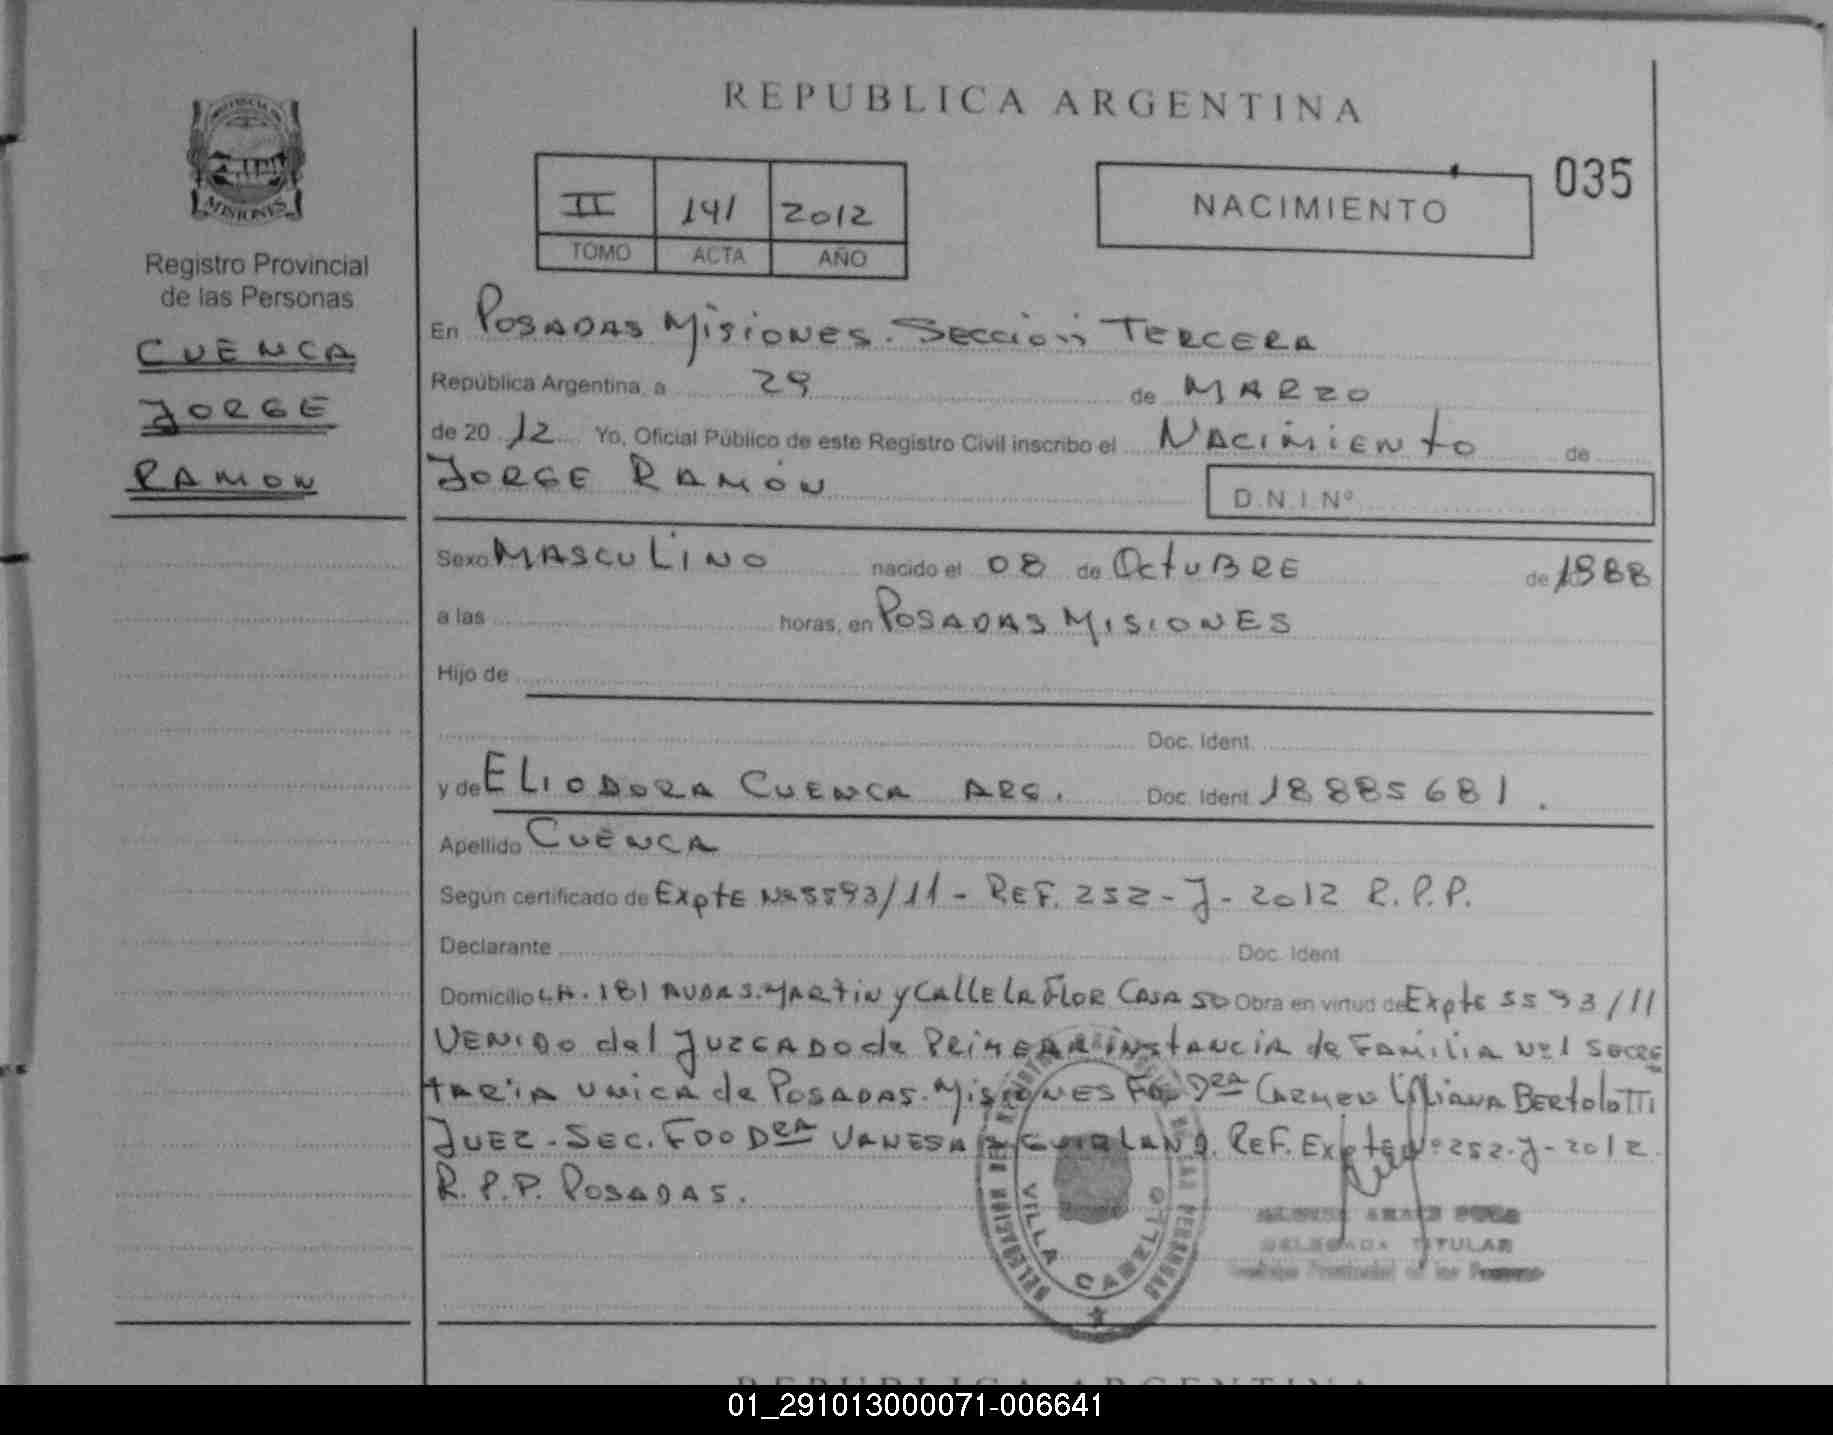 REPUBLICA ARGENTINA
PROVINCIA DE
MISIONES
Registro Provincial
de las Personas
CUENCA
JORGE
RAMON
II 141 2012
TOMO ACTA AÑO
NACIMIENTO
035
En POSADAS Misiones. Sección TERCERA
República Argentina, a 29 de MARZO
de 2012 Yo, Oficial Público de este Registro Civil inscribo el NACIMIENTO de
JORGE RAMÓN
D.N.I.Nº
Sexo MASCULINO nacido el 08 de OctuBRE de 1988
a las horas, en POSADAS MISIONES
Hijo de
Doc. Ident.
y de ELIODORA CUENCA ARG. Doc. Ident. 18885681.
Apellido CUENCA
Según certificado de ExptE Nº 5593/11 - REF. 252-J-2012 R.P.P.
Declarante Doc. Ident.
Domicilio CH. 181 AVDA S. MARTIN y CALLE LA FLOR CASA 50 Obra en virtud de Expte 5593/11
VENIDO del JUZGADO de PRIMERA INSTANCIA de FAMILIA Nº 1 SECRE
TARIA UNICA de POSADAS. Misiones FDO DRA CARMEN Liliana BERTOLOTTI
JUEZ. SEC. FDO DRA VANESA REF. Expte Nº 252-J-2012
R.P.P. POSADAS.
VILLA CABELLO
DELEGADA TITULAR
REPUBLICA ARGENTINA
01_291013000071-006641